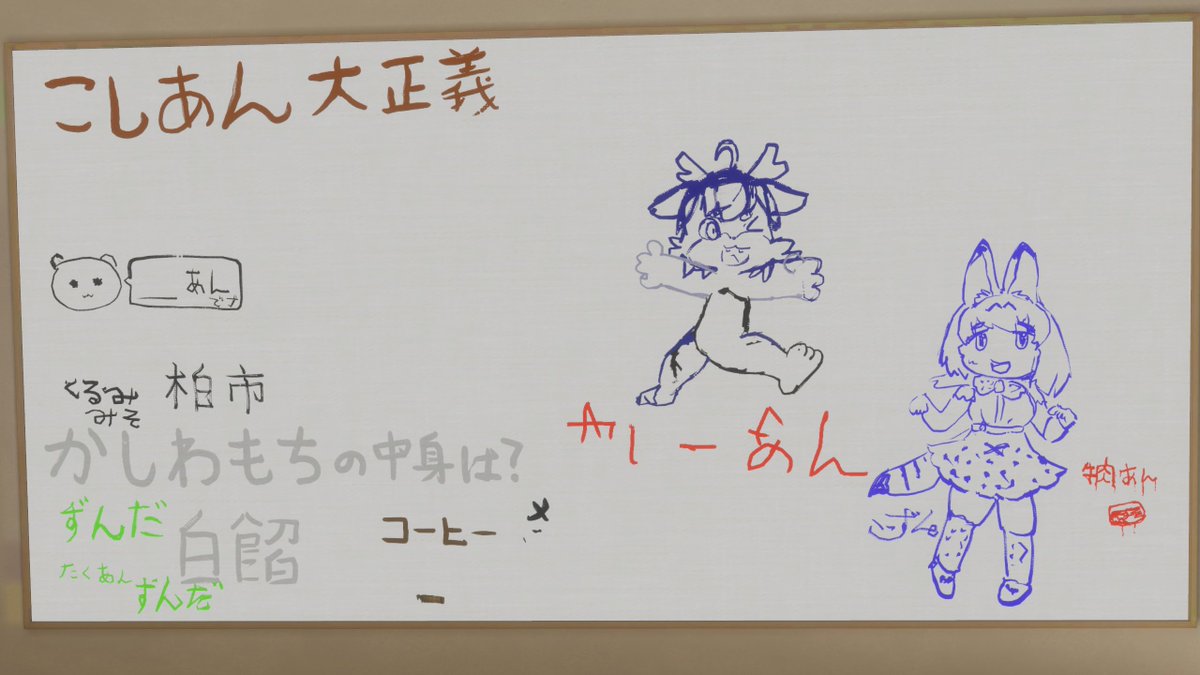 こしあん大正義
あん
です
くるみ
みそ
柏市
かしわもちの中身は?
ずんだ
白餡
コーヒー
たくあん
ずんだ
やしーあん
牛肉あん